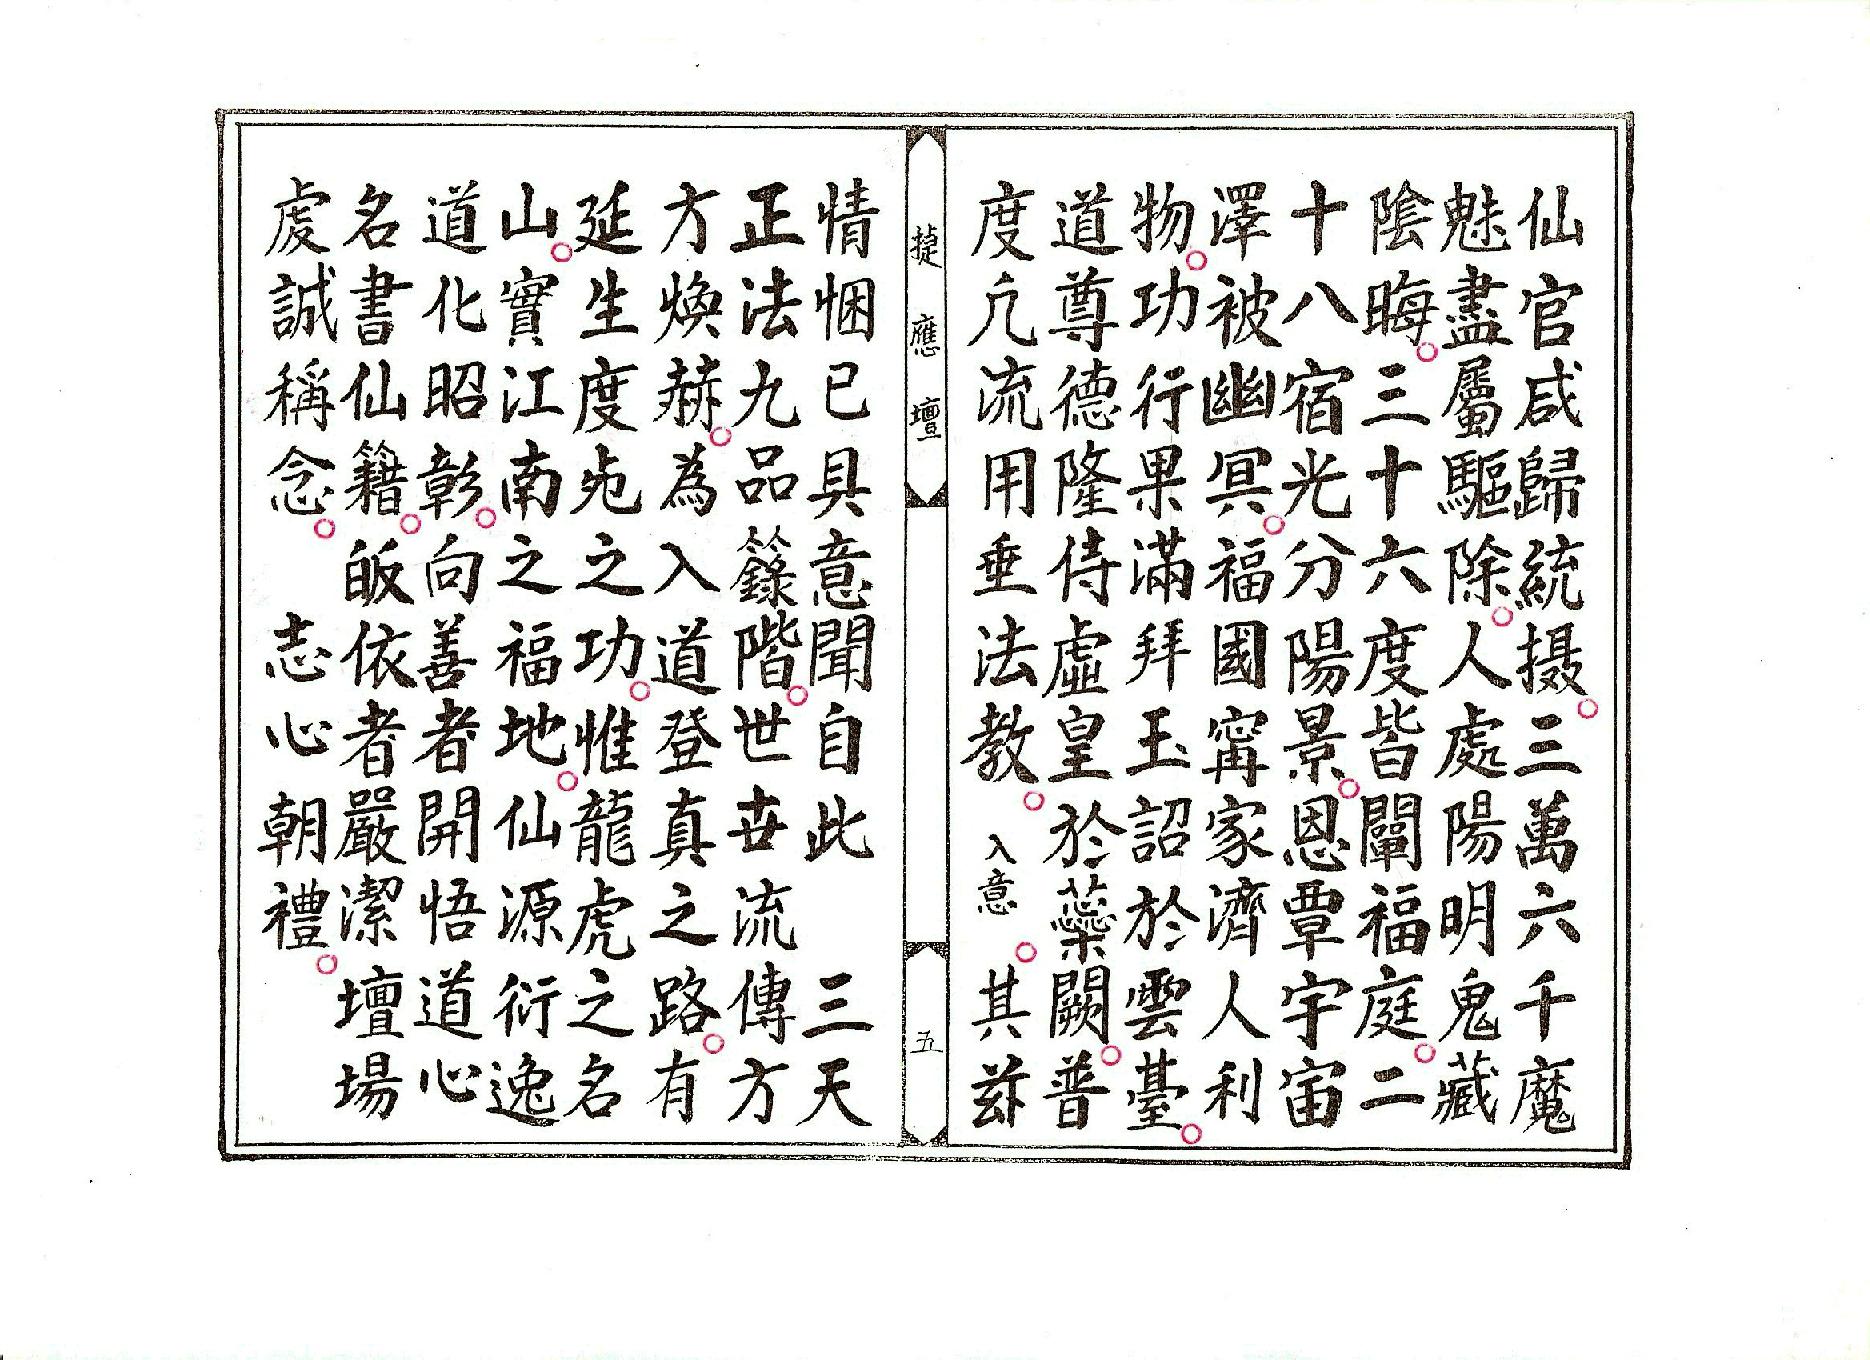 仙官咸歸統摄。三萬六千魔
魅盡屬驅除。人處陽明鬼藏
陰晦。三十六度皆闡福庭。二
十八宿光分陽景。恩覃宇宙
澤被幽冥。福國甯家濟人利
物。功行果滿拜玉詔於雲臺。
道尊德隆侍虛皇於蘂闕。普
度凢流用垂法教。入意。其兹
捷應壇
五
情悃已具意聞自此 三天
正法九品籙階。世世流傳方
方煥赫。為入道登真之路。有
延生度之功。惟龍虎之名
山。實江南之福地。仙源衍逸
道化昭彰。向善者開悟道心
名書仙籍。皈依者嚴潔壇場
虔誠稱念。 志心朝禮。